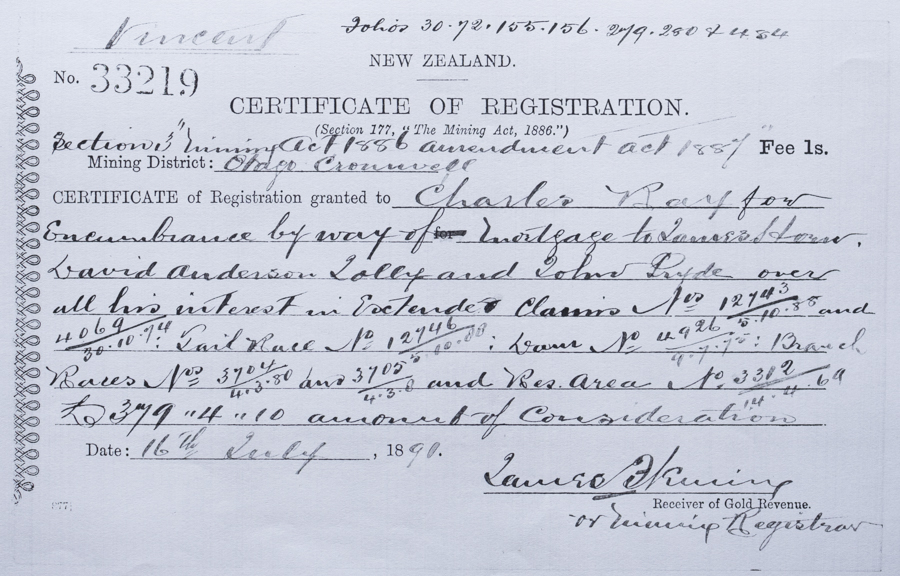 Vincent
Folios 30.72.155.156.279.280 & 484
NEW ZEALAND.
No. 33219
CERTIFICATE OF REGISTRATION.
(Section 177, "The Mining Act, 1886.")
Section 3 "Mining Act 1886 amendment act 1887" Fee 1s.
Mining District: Otago Cromwell
CERTIFICATE of Registration granted to Charles Ray for
Encumbrance by way of for mortgage to James Horn,
David Anderson Jolly and John Pryde over
all his interest in Extended Claims Nos 12743/5.10.88 and
4069/30.10.74: Tail Race No 12746/5.10.88: Dam No 4926/9.7.75: Branch
Races Nos 3704/4.3.80 and 3705/4.3.8 and Res. Area No 3312/14.4.69
£379 "4 "10 amount of Consideration
Date: 16th July, 1890.
James
Receiver of Gold Revenue.
or Mining Registrar